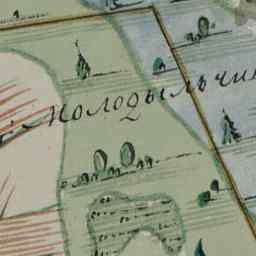 Молодыльчин